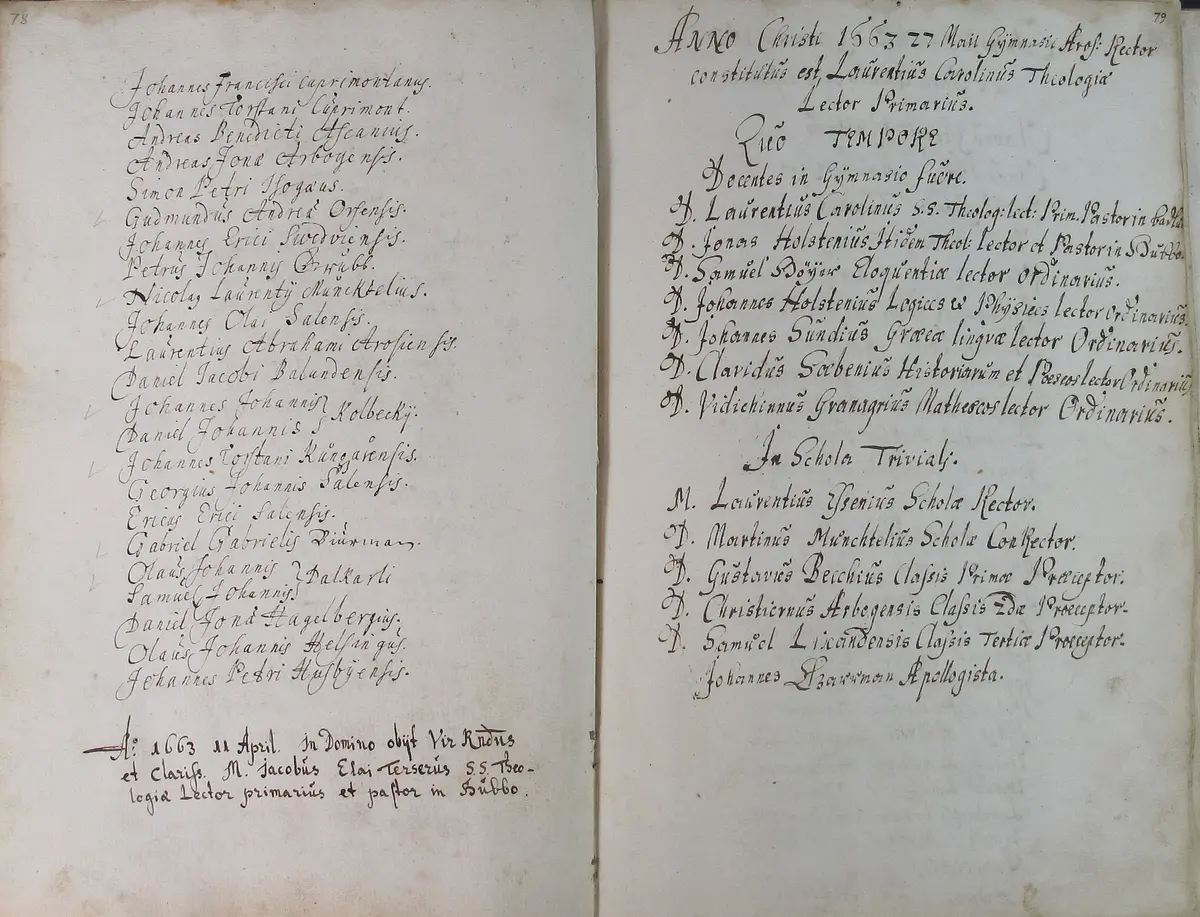 78
Johannes Francisci Cuprimontanus.
Johannes Torstani Cuprimont.
Andreas Benedicti Ascanius.
Andreas Jonæ Arbogensis.
Simon Petri Isogæus.
Gudmundus Andreæ Orsensis.
Johannes Erici Swedviensis.
Petrus Johannis
Nicolaus Laurentij Muncktelius.
Johannes Olai Salensis.
Laurentius Abrahami Arosiensis.
Daniel Jacobi Balundensis.
Johannes Johannis
Daniel Johannis } Kolbeckij.
Johannes Torstani Kungårensis.
Georgius Johannis Salensis.
Ericus Erici Salensis.
Gabriel Gabrielis Biurman.
Olaus Johannis
Samuel Johannis } Dalkarli
Daniel Jonæ Hagelbergius.
Olaus Johannis Helsingus.
Johannes Petri Husbyensis.
A:o 1663 11 April. In Domino obijt Vir Rndus
et Clariss. M. Jacobus Elai Terserus S.S. Theo-
logiæ Lector primarius et pastor in Hubbo.
79
ANNO Christi 1663 27 Maii Gymnasii Aros: Rector
constitutus est, Laurentius Carolinus Theologiæ
Lector Primarius.
Quo TEMPORE
Docentes in Gymnasio fuere.
D. Laurentius Carolinus S.S. Theolog: lect: Prim. Pastor in
D. Jonas Holstenius Itidem Theol: Lector et Pastor in Hubbo.
D. Samuel Böyer Eloquentiæ lector ordinarius.
D. Johannes Holstenius Logices et Physices lector Ordinarius.
D. Johannes Sundius Græcæ lingvæ lector Ordinarius.
D. Clavidus Sæbenius Historiarum et Poëseos lector Ordinarius
D. Vidichinnus Granagrius Matheseos lector Ordinarius.
In Schola Triviali.
M. Laurentius Ysenius Scholæ Rector.
D. Martinus Munchtelius Scholæ ConRector.
D. Gustavus Becchius Classis Primæ Præceptor.
D. Christiernus Arbogensis Classis 2dæ Præceptor.
D. Samuel Lixandensis Classis Tertiæ Præceptor.
Johannes Apollogista.